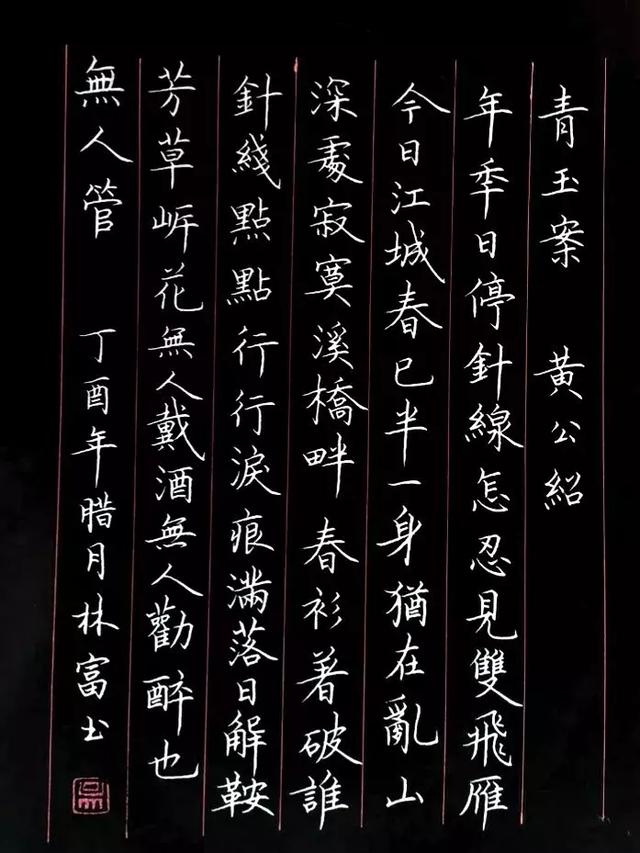 青玉案 黄公紹
年秊日停針線怎忍見雙飛雁
今日江城春已半一身猶在亂山
深處寂寞溪橋畔春衫著破誰
針綫點點行行淚痕滿落日解鞍
芳草岸花無人戴酒無人勸醉也
無人管 丁酉年腊月林富书